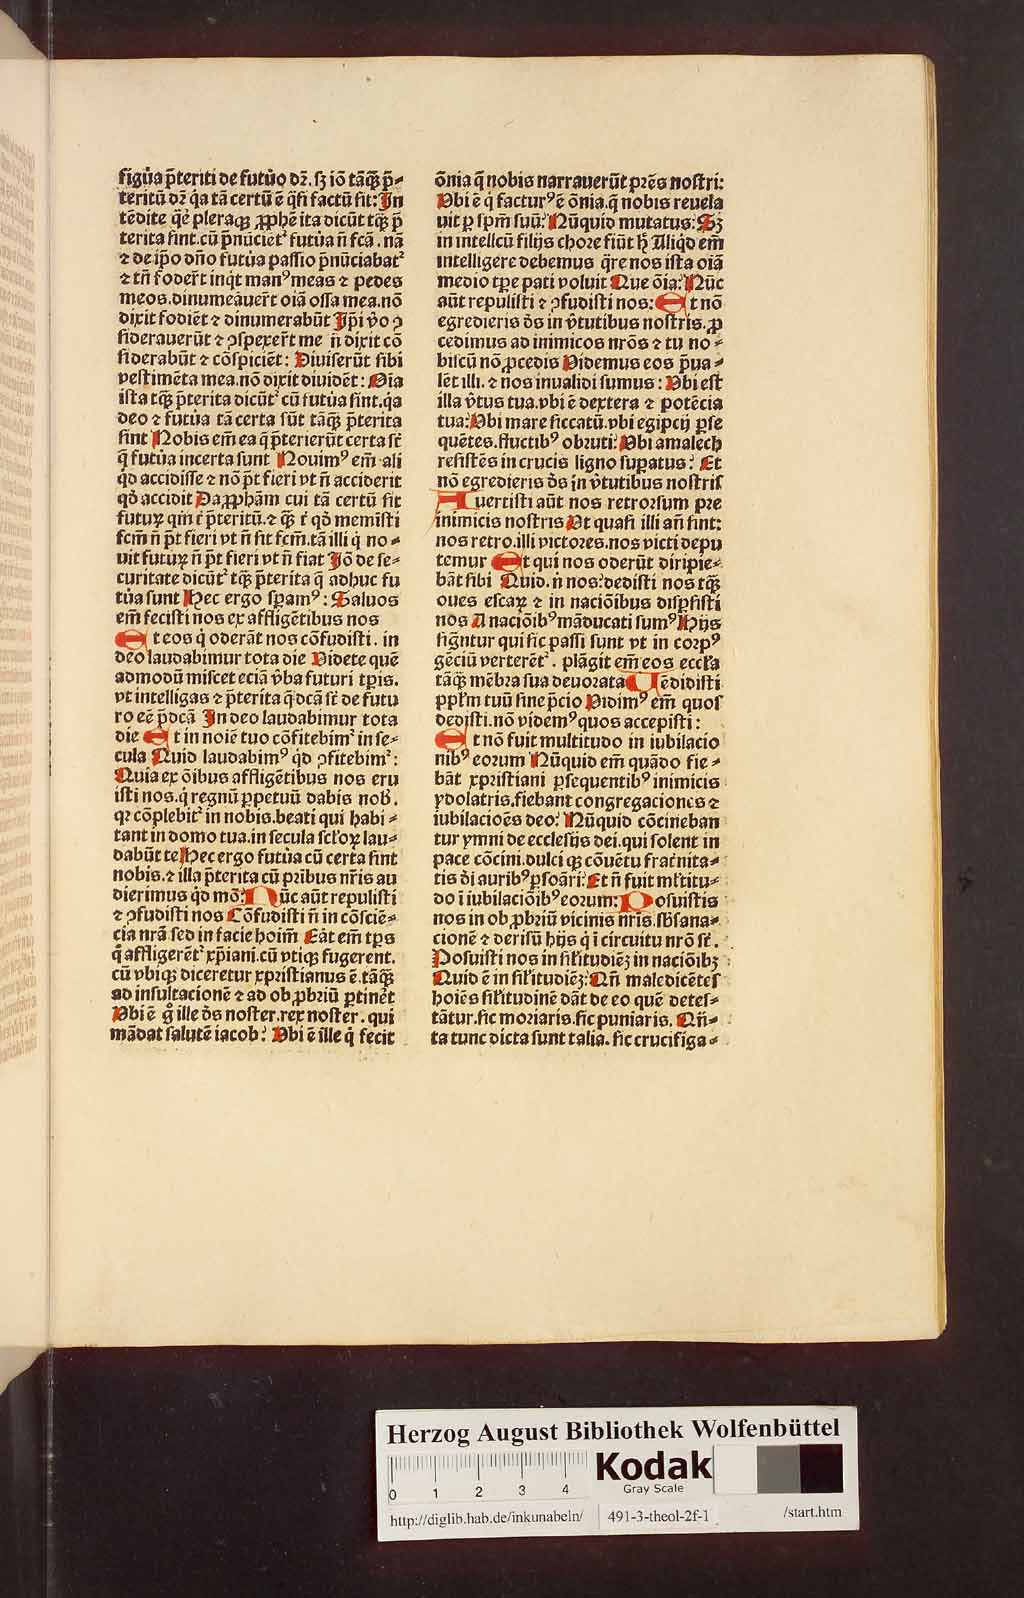 figur̉a p̄teriti de futur̉o dꝛ̄. sꝫ iō tāqꝫ p̄⸗
teritū dꝛ̄ q̇a tā certū ē q̇si factū sit: In
tēdite q̇e̾ pleraqꝫ ꝓphē ita dicūt tqꝫ̄ p̄
terita sint. cū p̄nūciet᷑ futur̉a n̄ fcā. nā
⁊ de ip̄o dn̄o futur̉a passio p̄nūciabat᷑
⁊ tn̄ foder̄t inq̇t manꝰ meas ⁊ pedes
meos. dinumeȧuer̄t oīa ossa mea. nō
dixit fodiēt ⁊ dinumerabūt Ip̄i v̾o ꝯ
siderauerūt ⁊ ꝯspexer̄t me n̄ dixit cō
siderabūt ⁊ cōspiciēt: Diuiserūt sibi
vestimēta mea. nō dixit diuidēt: Qia
ista tāqꝫ p̄terita dicūt᷑ cū futur̉a sint. q̇a
deo ⁊ futur̉a tā certa sūt tāqꝫ p̄terita
sint Nobis em̄ ea q̄ p̄terierūt certa st̄
q̄ futur̉a incerta sunt Nouimꝰ em̄ ali
q̇d accidisse ⁊ nō p̄t fieri vt n̄ acciderit
qd̾ accidit Da ꝓphām cui tā certū sit
futuꝝ qm̄ t̄ p̄teritū. ⁊ qꝫ̄ t̄ qd̾ memīsti
fcm̄ n̄ p̄t fieri vt n̄ sit fcm̄. tā illi q̇ no⸗
uit futuꝝ n̄ p̄t fieri vt n̄ fiat Iō de se⸗
curitate dicūt᷑ tqꝫ̄ p̄terita q̄ adhuc fu
tur̉a sunt Hec ergo sꝑamꝰ: Saluos
em̄ fecisti nos ex affligētibus nos
Et eos q̇ oderāt nos cōfudisti. in
deo laudabimur tota die Videte quē
admodū miscet eciā v̾ba futuri tꝑis.
vt intelligas ⁊ p̄terita q̄ dcā st̄ de futu
ro eē p̄dcā In deo laudabimur tota
die Et in noīe tuo cōfitebim᷑ in se⸗
cula Quid laudabimꝰ q̇d ꝯfitebim᷑:
Quia ex oībus affligētibus nos eru
isti nos. q̇ regnū ꝑpetuū dabis nob̾.
qꝛ cōplebit᷑ in nobis. beati qui habi⸗
tant in domo tua. in secula sc̄loꝝ lau⸗
dabūt te Hec ergo futur̉a cū certa sint
nobis. ⁊ illa p̄terita cū pr̄ibus nr̄is au
dierimus q̇d mō: Nūc aūt repulisti
⁊ ꝯfudisti nos Cōfudisti n̄ in cōsciē⸗
cia nrā sed in facie hoim̄ Eāt em̄ tꝑs
q̄ affligerēt᷑ xp̄iani. cū vtiqꝫ fugerent.
cū vbiqꝫ diceretur xpristianus ē. tāqꝫ
ad insultacionē ⁊ ad obꝓbriū ꝑtinēt
Vbi ē gͦ ille ds̄ noster. rex noster. qui
mādat salutē iacob: Vbi ē ille q̇ fecit
ōnia q̄ nobis narrauerūt pꝛēs nostri:
Vbi ē q̇ facturꝰ ē ōnia. q̄ nobis reuela
uit ꝑ spm̄ suū: Nūquid mutatus: Sꝫ
in intellcū filijs chore fiūt h̾ Aliqd̾ em̄
intelligere debemus q̄re nos ista oīa
medio tꝑe pati voluit Que oīa: Nūc
aūt repulisti ⁊ ꝯfudisti nos: Et nō
egredieris ds̄ in v̾tutibus nostris. ꝓ
cedimus ad inimicos nrōs ⁊ tu no⸗
biscū nō ꝓcedis Videmus eos p̄ua⸗
lēt illi. ⁊ nos inualidi sumus: Vbi est
illa v̾tus tua. vbi ē dextera ⁊ potēcia
tua: Vbi mare siccatū. vbi egipcij ꝑse
quētes. fluctibꝰ obruti: Vbi amalech
resistēs in crucis ligno suꝑatus: Et
nō egredieris ds̄ in v̾tutibus nostris
Auertisti aūt nos retrorsum pre
inimicis nostris Vt quasi illi an̄ sint:
nos retro. illi victores. nos victi depu
temur Et qui nos oderūt diripie⸗
bāt sibi Quid. n̄ nos: dedisti nos tqꝫ̄
oues escaꝝ ⁊ in naciōibus disꝑsisti
nos A naciōibꝰ māducati sumꝰ Hijs
sign̄tur qui sic passi sunt vt in corpꝰ
gēciū verterēt᷑. plāgit em̄ eos eccl̄ia
tāqꝫ mēbra sua deuorata Uēdidisti
ppl̄m tuū sine p̄cio Vidimꝰ em̄ quos
dedisti. nō videmꝰ quos accepisti:
Et nō fuit multitudo in iubilacio
nibꝰ eorum Nūquid em̄ quādo fie⸗
bāt xpristiani ꝑsequentibꝰ inimicis
ydolatris. fiebant congregaciones ⁊
iubilacioēs deo: Nūquid cōcineban
tur ymni de ecclesijs dei. qui solent in
pace cōcini. dulci qꝫ cōuētu frat̄nita⸗
tis dī auribꝰ ꝑsoāri: Et n̄ fuit ml̄titu⸗
do ī iubilacioībꝰ eorum: Posuistis
nos in obꝓbriū vicinis nr̄is. sb̄sana⸗
cionē ⁊ derisū hijs q̇ ī circuitu nrō st̄.
Posuisti nos in sil̄itudiēꝫ in naciōibꝫ
Quid ē in sil̄itudiēꝫ: Qn̄ maledicētes
hoiēs sil̄itudinē dāt de eo quē detes⸗
tātur. sic moriaris. sic puniaris. Qn̄⸗
ta tunc dicta sunt talia. sic crucifiga⸗
Herzog August Bibliothek Wolfenbüttel
Kodak
Gray Scale
0 1 2 3 4
http://diglib.hab.de/inkunabeln/ 491-3-theol-2f-1 /start.htm